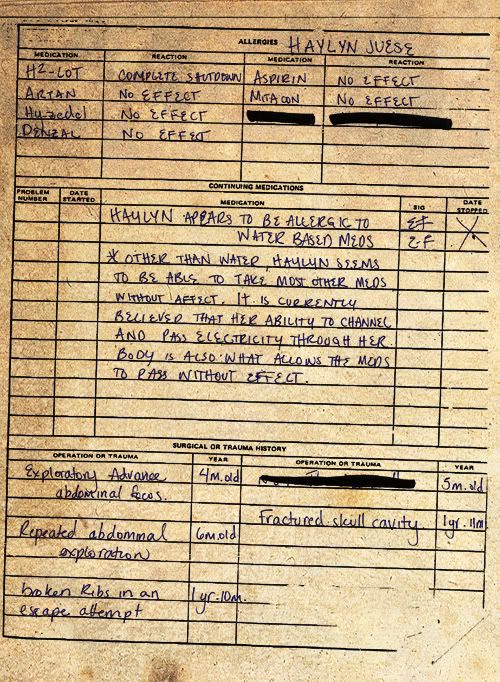 ALLERGIES HAYLYN JUESE
MEDICATION REACTION MEDICATION REACTION
H2-LOT COMPLETE SHUTDOWN ASPIRIN NO EFFECT
ARTAN NO EFFECT MITACON NO EFFECT
Huzedel NO EFFECT
DENZAL NO EFFECT
CONTINUING MEDICATIONS
PROBLEM NUMBER DATE STARTED MEDICATION SIG DATE STOPPED
HAYLYN APPEARS TO BE ALLERGIC TO
WATER BASED MEDS
* OTHER THAN WATER, HAYLYN SEEMS
TO BE ABLE TO TAKE MOST OTHER MEDS
WITHOUT AFFECT. IT IS CURRENTLY
BELIEVED THAT HER ABILITY TO CHANNEL
AND PASS ELECTRICITY THROUGH HER
BODY IS ALSO WHAT ALLOWS THE MEDS
TO PASS WITHOUT EFFECT.
SURGICAL OR TRAUMA HISTORY
OPERATION OR TRAUMA YEAR OPERATION OR TRAUMA YEAR
Exploratory Advance 4 m. old 5 m. old
abdominal focus.
Fractured skull cavity 1 yr. 11m.
Repeated abdominal 6 m. old
exploration
broken Ribs in an 1 yr. 10m.
escape attempt